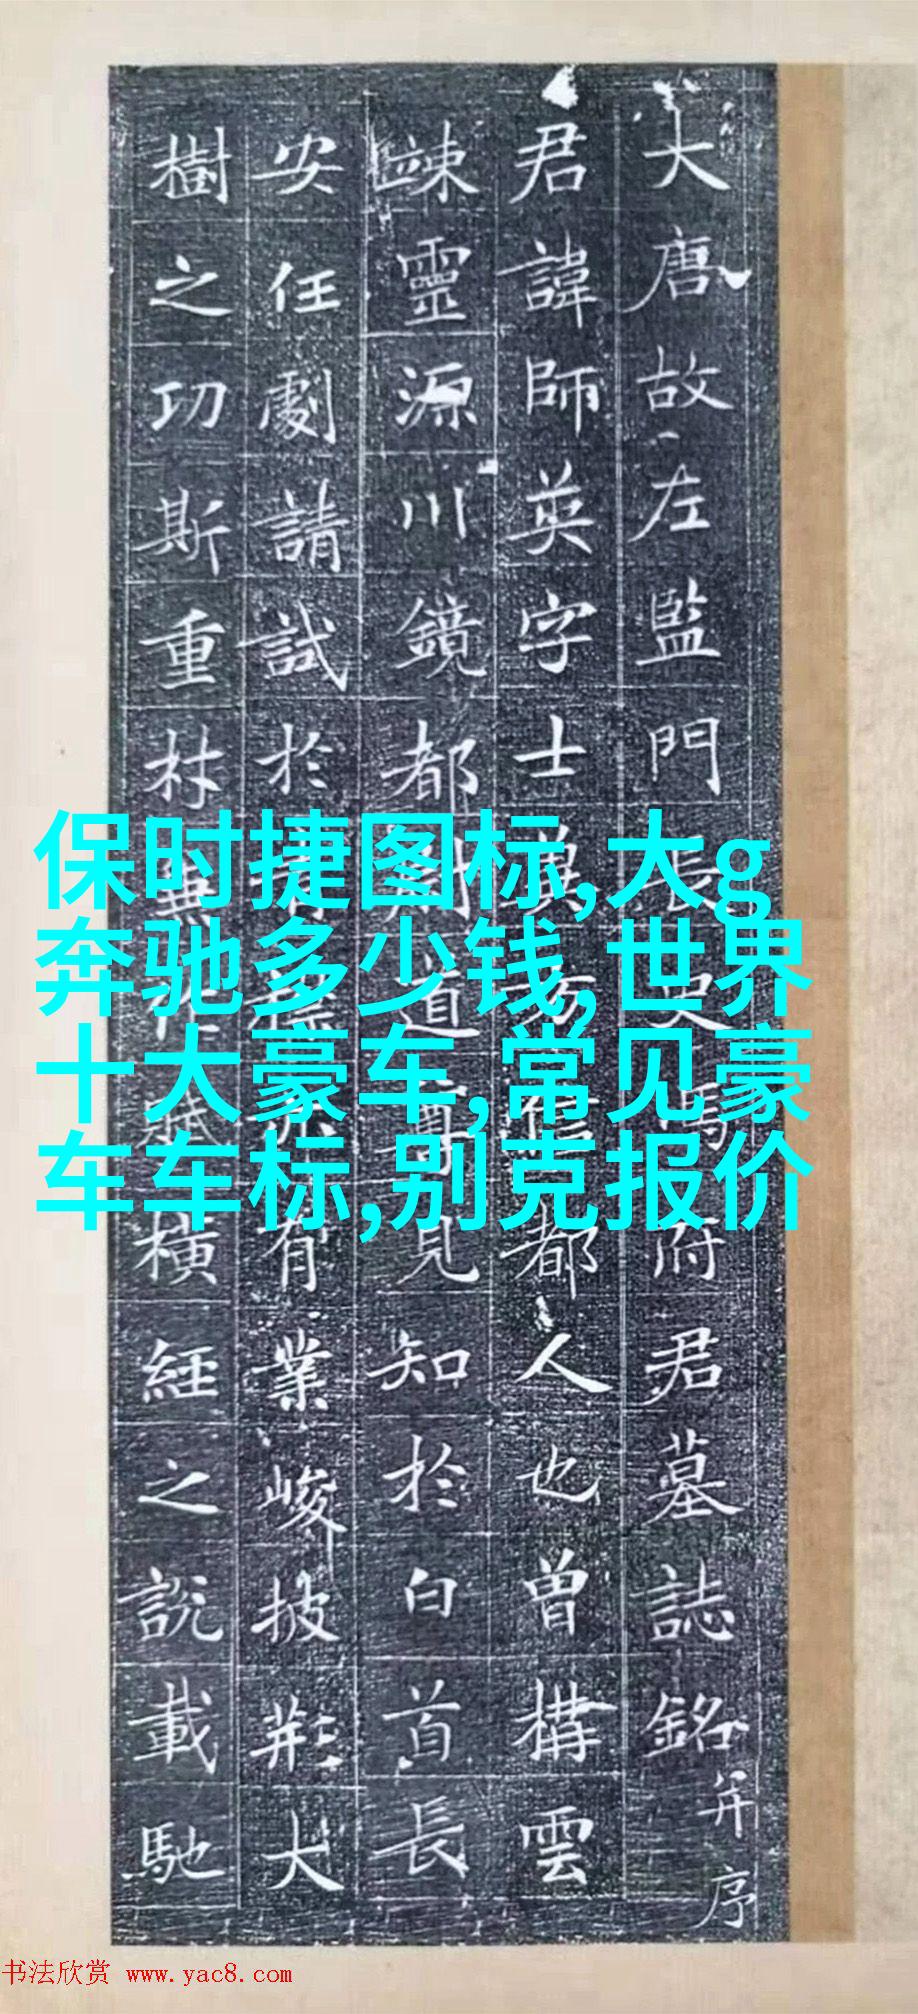 大唐故左監門長史馮府君墓誌銘并序
君諱師英字士都人也曾構雲
竦靈源川鏡都道尊見知於白首長
安任劇請試於有業峻披荊大
樹之功斯重林橫經之說載馳
保时捷图标,大g
奔驰多少钱,世界
十大豪车,常见豪
车车标,别克报价
书法欣赏 www.yac8.com